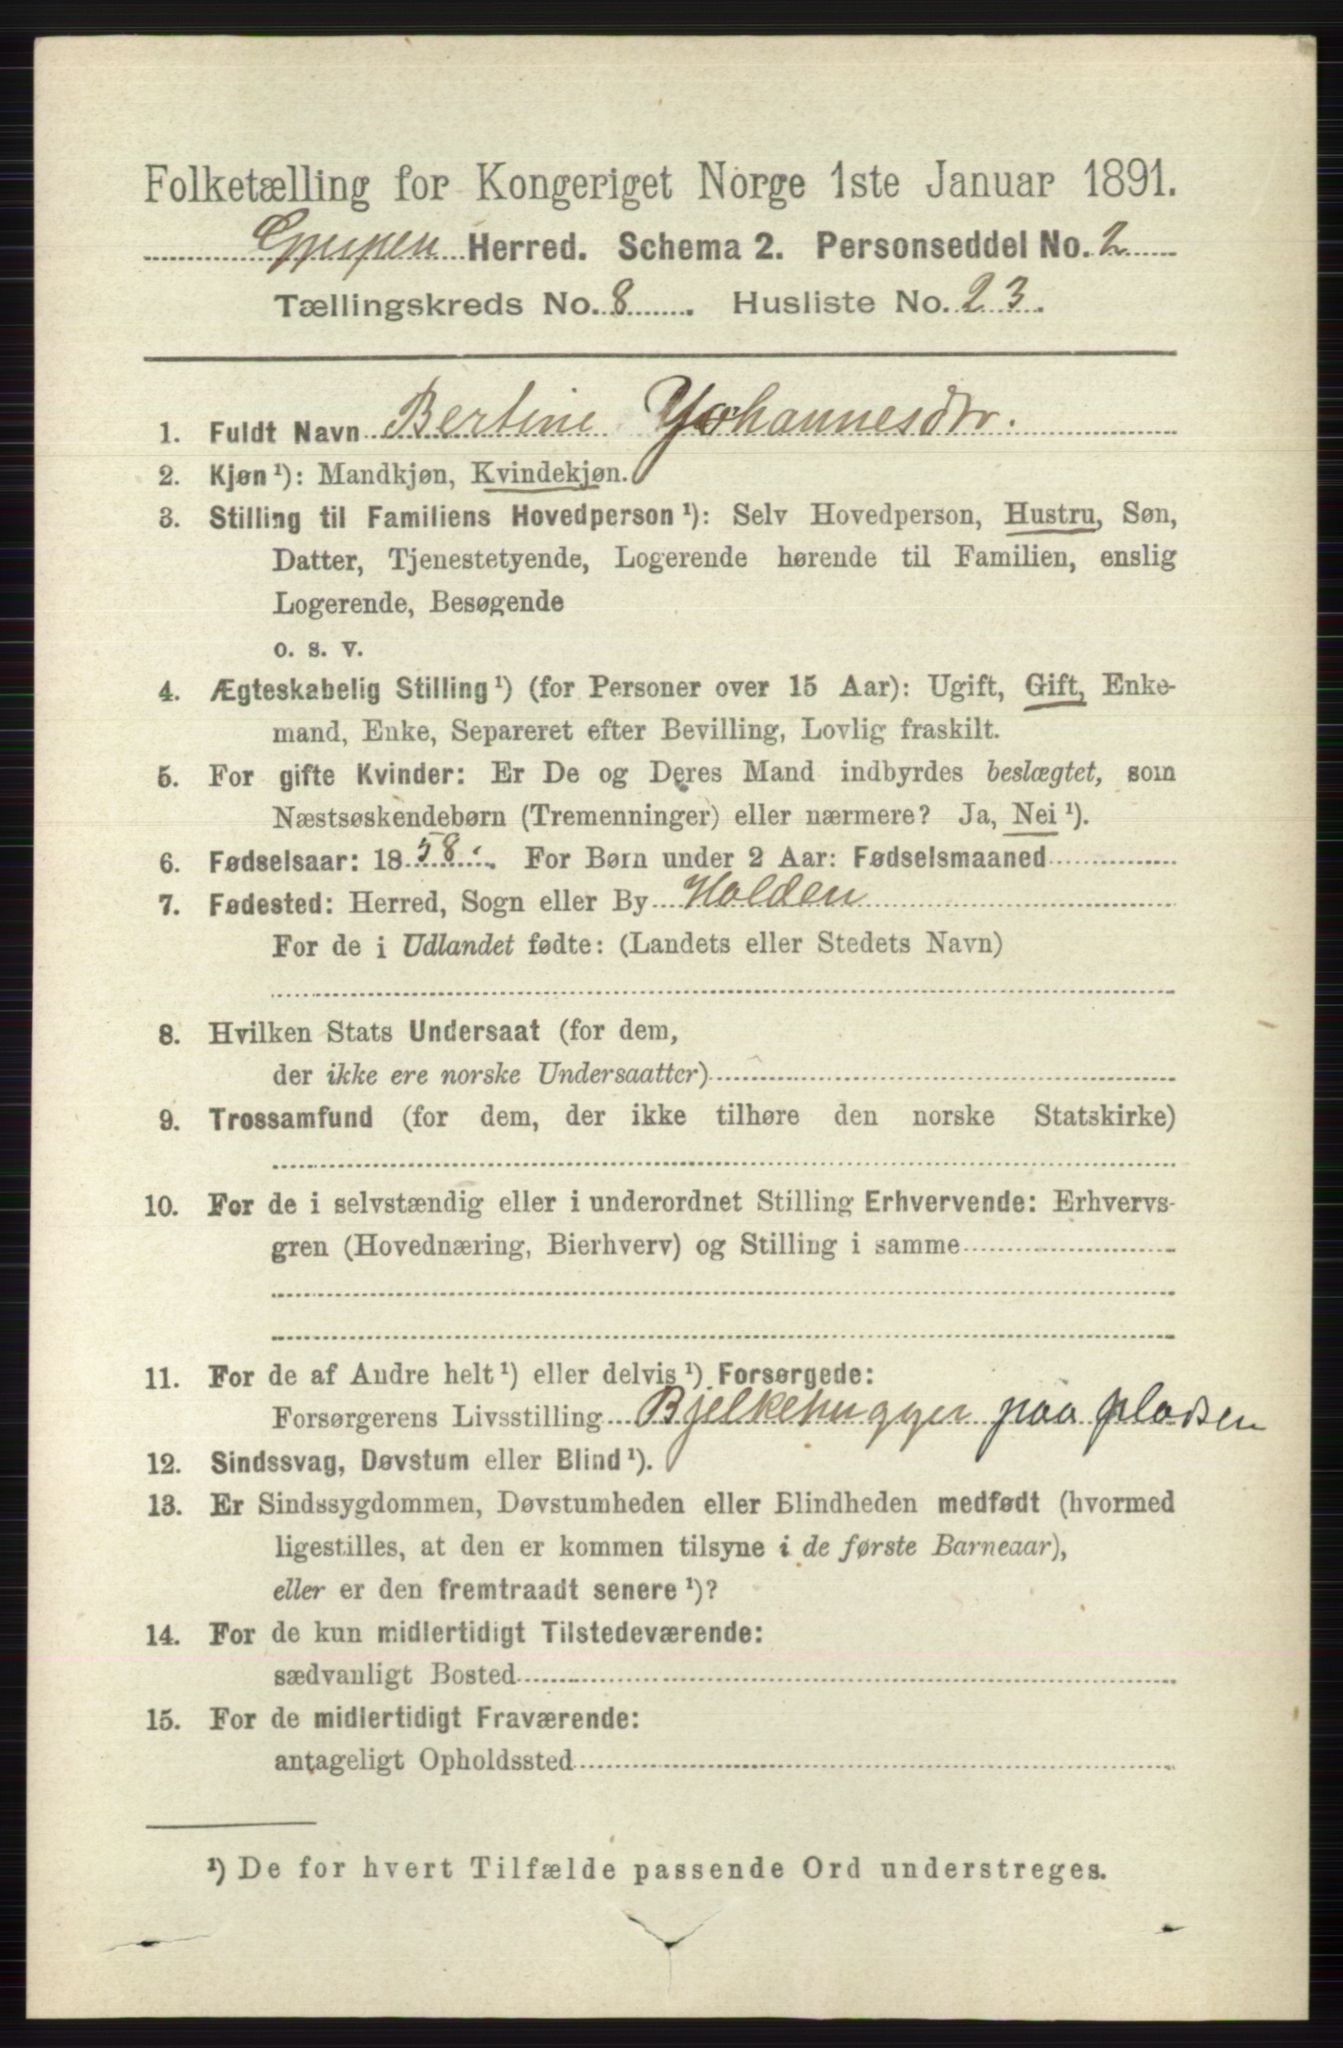 Folketælling for Kongeriget Norge 1ste Januar 1891.
Herred. Schema 2. Personseddel No. 2
Tællingskreds No. 8. Husliste No. 23.
1. Fuldt Navn Bertine Johannesdtr.
2. Kjøn ¹): Mandkjøn, Kvindekjøn.
3. Stilling til Familiens Hovedperson ¹): Selv Hovedperson, Hustru, Søn,
Datter, Tjenestetyende, Logerende hørende til Familien, enslig
Logerende, Besøgende
o. s. v.
4. Ægteskabelig Stilling ¹) (for Personer over 15 Aar): Ugift, Gift, Enke-
mand, Enke, Separeret efter Bevilling, Lovlig fraskilt.
5. For gifte Kvinder: Er De og Deres Mand indbyrdes beslægtet, som
Næstsøskendebørn (Tremenninger) eller nærmere? Ja, Nei ¹).
6. Fødselsaar: 1858. For Børn under 2 Aar: Fødselsmaaned
7. Fødested: Herred, Sogn eller By Holden
For de i Udlandet fødte: (Landets eller Stedets Navn)
8. Hvilken Stats Undersaat (for dem,
der ikke ere norske Undersaatter)
9. Trossamfund (for dem, der ikke tilhøre den norske Statskirke)
10. For de i selvstændig eller i underordnet Stilling Erhvervende: Erhvervs-
gren (Hovednæring, Bierhverv) og Stilling i samme
11. For de af Andre helt ¹) eller delvis ¹) Forsørgede:
Forsørgerens Livsstilling Bjelkehugger paa pladsen
12. Sindssvag, Døvstum eller Blind ¹).
13. Er Sindssygdommen, Døvstumheden eller Blindheden medfødt (hvormed
ligestilles, at den er kommen tilsyne i de første Barneaar),
eller er den fremtraadt senere ¹)?
14. For de kun midlertidigt Tilstedeværende:
sædvanligt Bosted
15. For de midlertidigt Fraværende:
antageligt Opholdssted
¹) De for hvert Tilfælde passende Ord understreges.